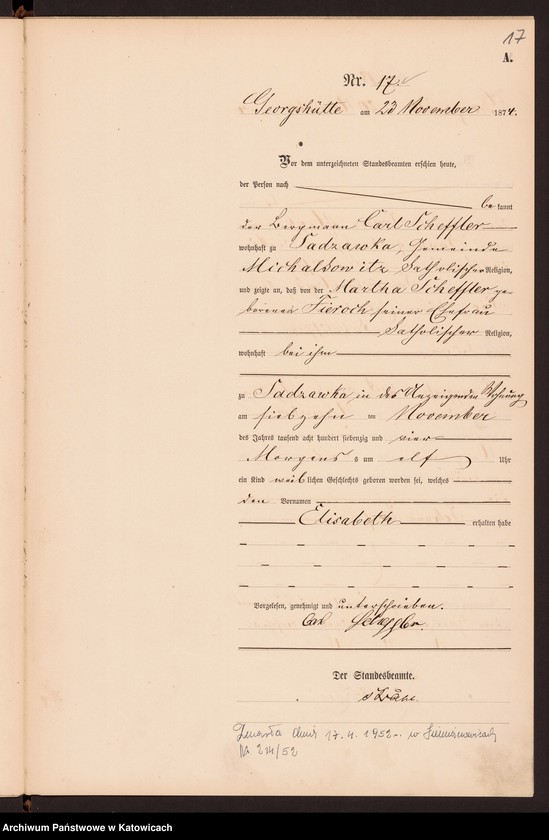 17
A.
Nr. 17.
Georgshütte am 23 November 1874.
Vor dem unterzeichneten Standesbeamten erschien heute,
der Person nach
be kannt
der Bergmann Carl Scheffler
wohnhaft zu Sadzawka, Gemeinde
Michalkowitz katholischer Religion,
und zeigte an, daß von der Martha Scheffler ge
borenen Fieroch seiner Ehefrau
katholischer Religion,
wohnhaft bei ihm
zu Sadzawka in des Anzeigenden Wohnung
am siebzehn ten November
des Jahres tausend acht hundert siebenzig und vier
Morgens um elf Uhr
ein Kind weiblichen Geschlechts geboren worden sei, welches
den Vornamen
Elisabeth erhalten habe
Vorgelesen, genehmigt und unterschrieben.
Carl Scheffler.
Der Standesbeamte.
Zmarła dnia 17.4.1952 r. w Siemianowicach
Nr. 214/52
Archiwum Państwowe w Katowicach